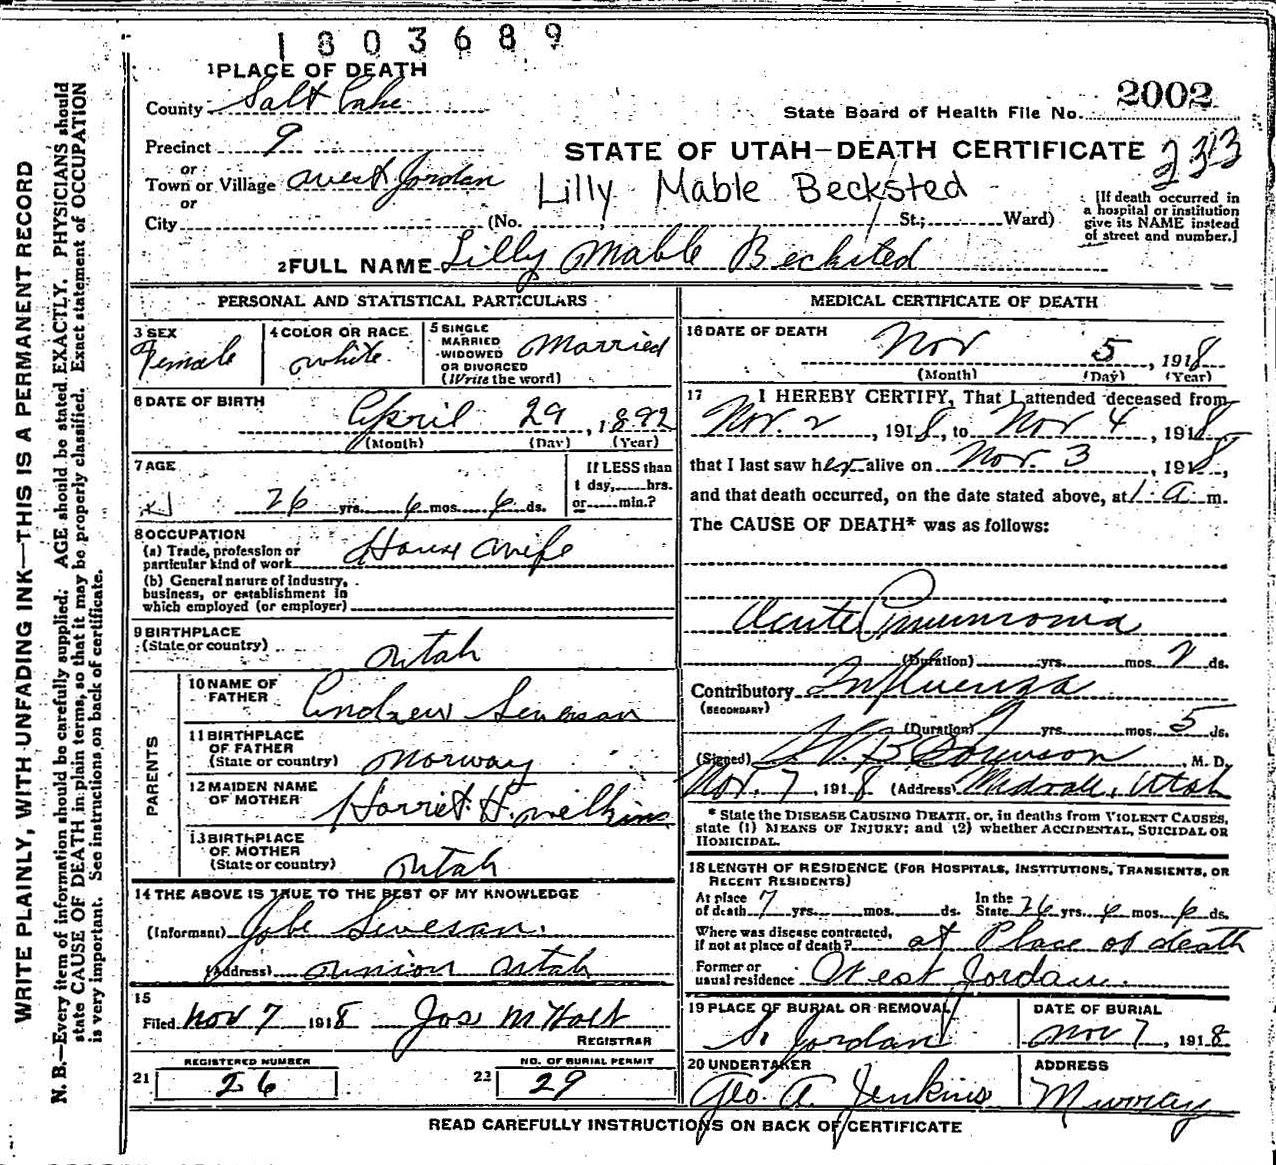 1803689
1 PLACE OF DEATH
County Salt Lake
State Board of Health File No. 2002
Precinct 9
STATE OF UTAH—DEATH CERTIFICATE 233
or
Town or Village West Jordan
Lilly Mable Becksted
or
City (No. St.; Ward)
[If death occurred in
a hospital or institution
give its NAME instead
of street and number.]
2 FULL NAME Lilly Mable Becksted
PERSONAL AND STATISTICAL PARTICULARS
3 SEX
Female
4 COLOR OR RACE
White
5 SINGLE
MARRIED
WIDOWED
OR DIVORCED
(Write the word)
Married
6 DATE OF BIRTH
April 29, 1892
(Month) (Day) (Year)
7 AGE
26 yrs. 6 mos. 6 ds.
If LESS than
1 day, hrs.
or min.?
8 OCCUPATION
(a) Trade, profession or
particular kind of work House Wife
(b) General nature of industry,
business, or establishment in
which employed (or employer)
9 BIRTHPLACE
(State or country) Utah
PARENTS
10 NAME OF
FATHER Andrew Severson
11 BIRTHPLACE
OF FATHER
(State or country) Norway
12 MAIDEN NAME
OF MOTHER Harriet H. Wilkins
13 BIRTHPLACE
OF MOTHER
(State or country) Utah
14 THE ABOVE IS TRUE TO THE BEST OF MY KNOWLEDGE
(Informant) Jobe Severson.
(Address) Union Utah
15
Filed Nov 7 1918 Jos M Holt
REGISTRAR
REGISTERED NUMBER
21 26
NO. OF BURIAL PERMIT
22 29
MEDICAL CERTIFICATE OF DEATH
16 DATE OF DEATH
Nov 5, 1918
(Month) (Day) (Year)
17 I HEREBY CERTIFY, That I attended deceased from
Nov. 2, 1918, to Nov 4, 1918
that I last saw her alive on Nov. 3, 1918,
and that death occurred, on the date stated above, at 1 a m.
The CAUSE OF DEATH* was as follows:
Acute Pneumonia
(Duration) yrs. mos. 2 ds.
Contributory Influenza
(SECONDARY)
(Duration) yrs. mos. 5 ds.
(Signed) M. D.
Nov. 7, 1918 (Address) Midvale, Utah
* State the DISEASE CAUSING DEATH, or, in deaths from VIOLENT CAUSES,
state (1) MEANS OF INJURY; and (2) whether ACCIDENTAL, SUICIDAL OR
HOMICIDAL.
18 LENGTH OF RESIDENCE (FOR HOSPITALS, INSTITUTIONS, TRANSIENTS, OR
RECENT RESIDENTS)
At place
of death 7 yrs. mos. ds.
In the
State 26 yrs. 6 mos. 6 ds.
Where was disease contracted,
if not at place of death? at Place of death
Former or
usual residence West Jordan.
19 PLACE OF BURIAL OR REMOVAL
S. Jordan
DATE OF BURIAL
Nov 7, 1918
20 UNDERTAKER
Geo. A. Jenkins
ADDRESS
Murray
READ CAREFULLY INSTRUCTIONS ON BACK OF CERTIFICATE
WRITE PLAINLY, WITH UNFADING INK—THIS IS A PERMANENT RECORD
N. B.—Every item of information should be carefully supplied; AGE should be stated EXACTLY. PHYSICIANS should
state CAUSE OF DEATH in plain terms, so that it may be properly classified. Exact statement of OCCUPATION
is very important. See instructions on back of certificate.